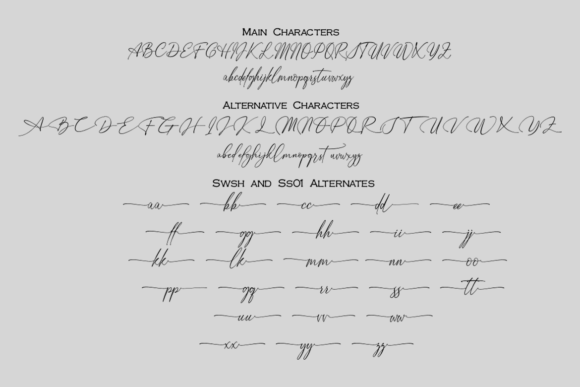 Main Characters
ABCDEFGHIJKLMNOPQRSTUVWXYZ
abcdefghijklmnopqrstuvwxyz
Alternative Characters
ABCDEFGHIJKLMNOPQRSTUVWXYZ
abcdefghijklmnopqrst uvwxyz
Swsh and Ss01 Alternates
aa bb cc dd ee
ff gg hh ii jj
kk lk mm nn oo
pp qq rr ss tt
uu vv ww
xx yy zz